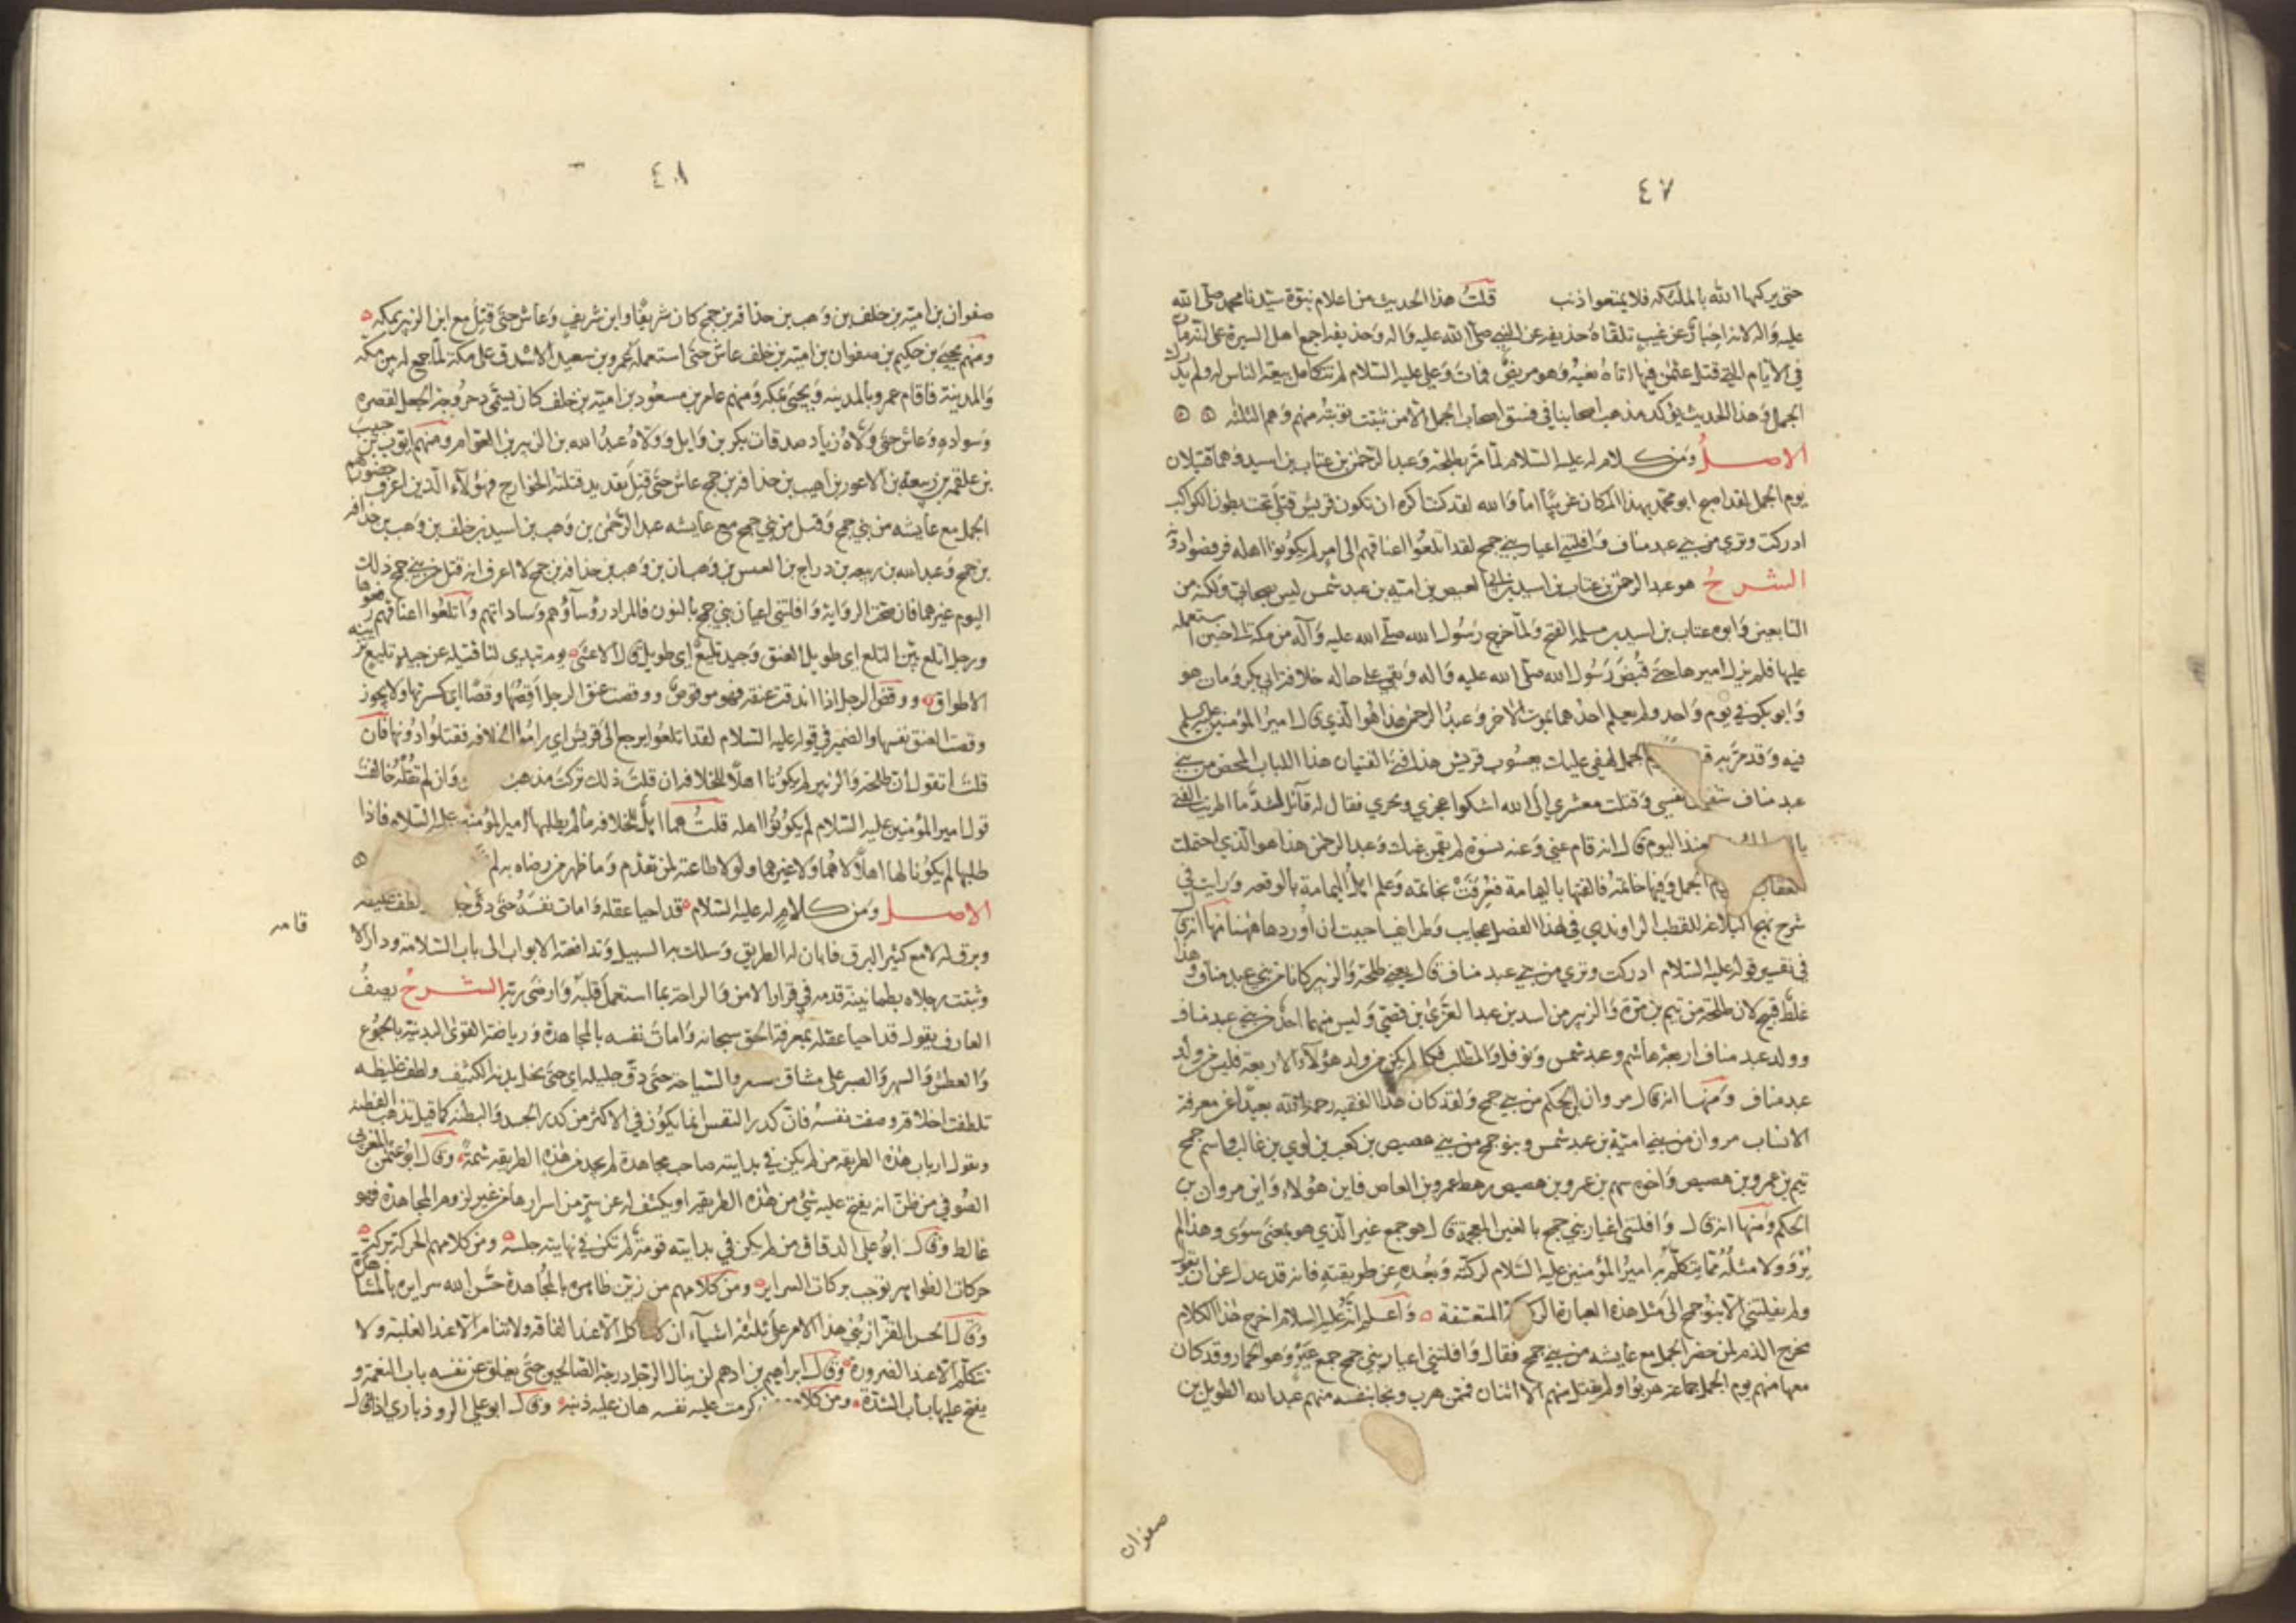 ٤٧
حتى يركبها الله بالملائكة فلا يمنعوا ذنب قلت هذا الحديث من اعلام نبوة سيدنا محمد صلى الله
عليه واله لانه اخبار عن غيب تلقاه حذيفة عن النبي صلى الله عليه واله وحذيفة اجمع اهل السيرة على انه مات
في الايام التي قتل عثمن فيها اتاه نعيه وهو مريض فمات وعلي عليه السلام لم تتكامل بيعة الناس له ولم يدرك
الجمل وهذا الحديث يؤكد مذهب اصحابنا في فسق اصحاب الجمل الا من ثبتت توبته منهم وهم الثلثة
الاصل ومن كلام له عليه السلام لما مر بطلحة وعبد الرحمن بن عتاب بن اسيد وهما قتيلان
يوم الجمل لقد اصبح ابو محمد بهذا المكان غريبا اما والله لقد كنت اكره ان تكون قريش قتلى تحت بطون الكواكب
ادركت وتري من بني عبد مناف وافلتني اعيار بني جمح لقد اتلعوا اعناقهم الى امر لم يكونوا اهله فوقصوا دونه
الشرح هو عبد الرحمن بن عتاب بن اسيد بن ابي العيص بن امية بن عبد شمس ليس بصحابي ولكنه من
التابعين وابوه عتاب بن اسيد من مسلمة الفتح ولما خرج رسول الله صلى الله عليه وآله من مكة الى حنين استعمله
عليها فلم يزل اميرها حتى قبض رسول الله صلى الله عليه واله وبقي على حاله خلافة ابي بكر ومات هو
وابو بكر في يوم واحد ولم يعلم احدهما بموت الاخر وعبد الرحمن هذا هو الذي قال امير المؤمنين عليه السلم
فيه وقد مر به الجمل لهفي عليك يعسوب قريش هذا فتى الفتيان هذا اللباب المحض من بني
عبد مناف شفيت نفسي وقتلت معشري الى الله اشكو عجري وبجري فقال له قائل لشد ما اطريت الفتى
منذ اليوم قال انه قام عني وعنه نسوة لم يقمن عنك وعبد الرحمن هذا هو الذي احتملت
العقاب الجمل وفيها خاتمه فالقتها باليمامة فعرفت بخاتمه وعلم اهل اليمامة بالوقعة ورايت في
شرح نهج البلاغة للقطب الراوندي في هذا الفصل عجايب وطرايف احببت ان اوردها ههنا منها انه قال
في تفسير قوله عليه السلام ادركت وتري من بني عبد مناف قال يعني طلحة والزبير كانا من بني عبد مناف وهذا
غلط قبيح لان طلحة من تيم بن مرة والزبير من اسد بن عبد العزى بن قصي وليس منهما احد من بني عبد مناف
وولد عبد مناف اربعة هاشم وعبد شمس ونوفل والمطلب فكل من لم يكن من ولد هؤلاء الاربعة فليس من ولد
عبد مناف ومنها انه قال مروان بن الحكم من بني جمح ولقد كان هذا الفقيه رحمه الله بعيدا عن معرفة
الانساب مروان من بني امية بن عبد شمس وبنو جمح من بني هصيص بن كعب بن لوي بن غالب واسم جمح
تيم بن عمرو بن هصيص واخوه سهم بن عمرو بن هصيص رهط عمرو بن العاص فاين هؤلاء واين مروان بن
الحكم ومنها انه قال وافلتني اغيار بني جمح بالغين المعجمة قال هو جمع غير الذي هو بمعنى سوى وهذا لم
يرو ولا مثله مما يتكلم به امير المؤمنين عليه السلام لركته وبعده عن طريقته فانه قد عدل عن ان يقول
ولم يفلتني الا بنو جمح الى مثل هذه العبارة المتعسفة واعلم انه عليه السلام اخرج هذا الكلام
مخرج الذم لمن حضر الجمل مع عايشة من بني جمح فقال وافلتني اعيار بني جمح جمع عير وهو الحمار وقد كان
معها منهم يوم الجمل جماعة هربوا ولم يقتل منهم الا اثنان فممن هرب ونجا بنفسه منهم عبد الله الطويل بن
صفوان
٤٨
صفوان بن امية بن خلف بن وهب بن حذافة بن جمح كان شريفا وابن شريف وعاش حتى قتل مع ابن الزبير بمكة
ومنهم يحيى بن حكيم بن صفوان بن امية بن خلف عاش حتى استعمله عمرو بن سعيد الاشدق على مكة لما جمع له بين مكة
والمدينة فاقام عمرو بالمدينة ويحيى بمكة ومنهم عامر بن مسعود بن امية بن خلف كان يسمى دحروجة الجعل لقصره
وسواده وعاش حتى ولاه زياد صدقات بكر بن وايل وولاه عبد الله بن الزبير بن العوام ومنهم ايوب بن حبيب
بن علقمة بن ربيعة بن الاعور بن اهيب بن حذافة بن جمح عاش حتى قتل بقديد قتلته الخوارج فهؤلاء الذين اعرف حضورهم
الجمل مع عايشه من بني جمح وقتل من بني جمح مع عايشه عبد الرحمن بن وهب بن اسيد بن خلف بن وهب بن حذافة
بن جمح وعبد الله بن ربيعه بن دراج بن العنبس بن وهبان بن وهب بن حذافة بن جمح لا اعرف انه قتل من بني جمح ذلك
اليوم غيرهما فان صحت الرواية وافلتني اعيان بني جمح بالنون فالمراد رؤساؤهم وساداتهم واتلعوا اعناقهم رفعوها
ورجل اتلع بين التلع اي طويل العنق وجيد تليع اي طويل قال الاعشى يوم تبدي لنا قتيلة عن جيد تليع تزينه
الاطواق ووقص الرجل اذا اندقت عنقه فهو موقوص ووقصت عنق الرجل اقصها وقصا اي كسرتها ولا يجوز
وقصت العنق نفسها والضمير في قوله عليه السلام لقد اتلعوا يرجع الى قريش اي راموا الخلافة فقتلوا دونها فان
قلت اتقول ان طلحة والزبير لم يكونا اهلا للخلافة فان قلت ذلك تركت مذهب وان لم تقله خالفت
قول امير المؤمنين عليه السلام لم يكونوا اهله قلت هما اهل للخلافة ما لم يطلبها امير المؤمنين عليه السلام فاذا
طلبها لم يكونا لها اهلا لا هما ولا غيرهما ولولا طاعته لمن تقدم وما ظهر من رضاه به لم
الاصل ومن كلام له عليه السلام قد احيا عقله وامات نفسه حتى دق لطف غليظه
وبرق له لامع كثير البرق فابان له الطريق وسلك به السبيل وتدافعته الابواب الى باب السلامة ودار الا
قامه
وثبتت رجلاه بطمانينة قدمه في قرار الامن والراحة بما استعمل قلبه وارضى ربه الشرح يصف
العارف يقول قد احيا عقله بمعرفة الحق سبحانه وامات نفسه بالمجاهدة ورياضة القوى البدنية بالجوع
والعطش والسهر والصبر على مشاق والسياحة حتى دق جليله اي حتى نحل بدنه الكثيف ولطف غليظه
تلطفت اخلاقه وصفت نفسه فان كدر النفس انما يكون في الاكثر من كدر الجسد والبطنة كما قيل تذهب الفطنة
ويقول ارباب هذه الطريقة من لم يكن في بدايته صاحب مجاهدة لم يجد من هذه الطريقة شمة وقال ابو عثمن المغربي
الصوفي من ظن انه يفتح عليه شيء من هذه الطريقة او يكشف له عن سر من اسرارها من غير لزوم المجاهدة فهو
غالط وقال ابو علي الدقاق من لم يكن في بدايته قومة لم تكن في نهايته جلسة ومن كلامهم الحركة بركة
حركات الظواهر توجب بركات السراير ومن كلامهم من زين ظاهره بالمجاهدة حسن الله سرايره بالمشاهدة
وقال الحسن القزاز بني هذا الامر على ثلثة اشياء ان لا ياكل الا عند الفاقة ولا تنام الا عند الغلبة ولا
تتكلم الا عند الضرورة وقال ابراهيم بن ادهم لن ينال الرجل درجة الصالحين حتى يغلق عن نفسه باب النعمة و
يفتح عليها باب الشدة ومن كلامهم من كرمت عليه نفسه هان عليه ذنبه وقال ابو علي الروذباري اذا قال